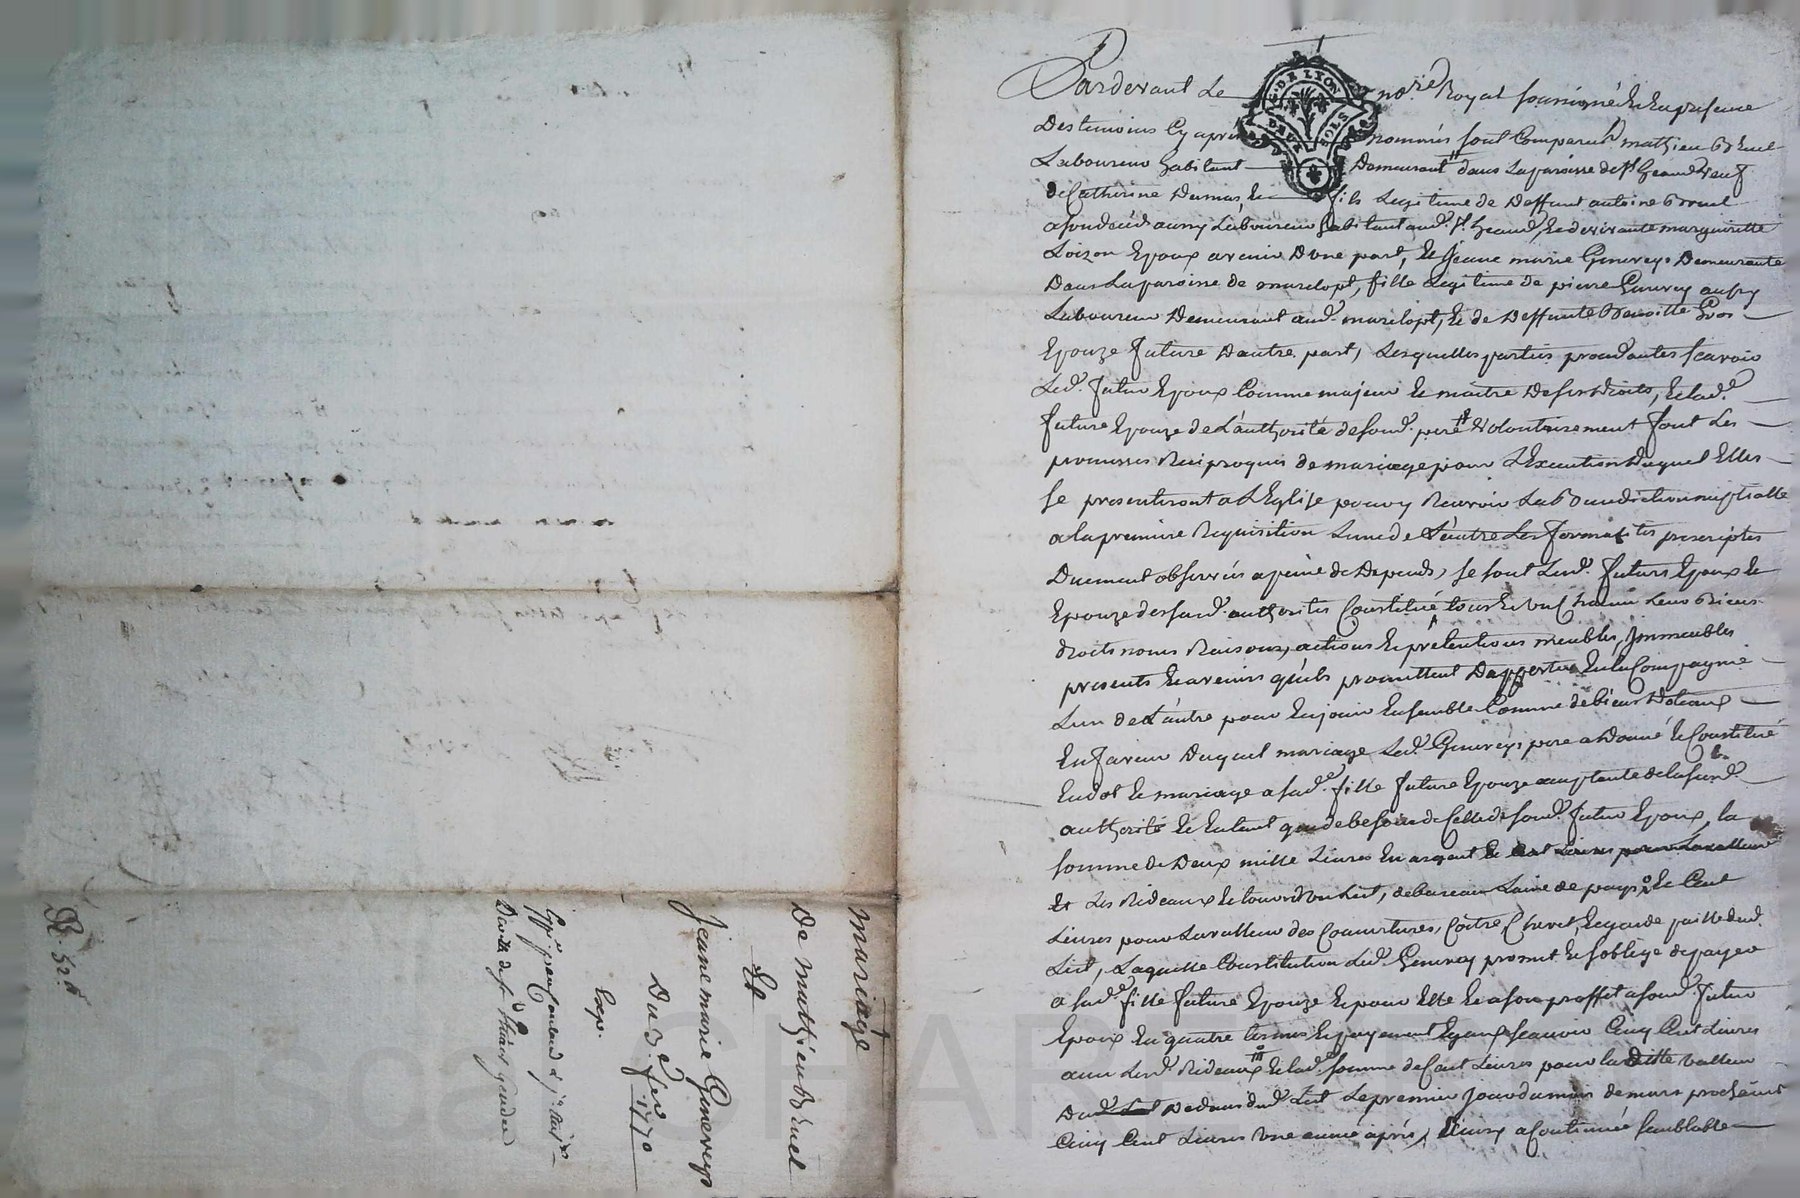 Pardevant Le no.re Royal soussigné Et En presence
Des temoins Cy aprés nommés sont Comparu mathieu Bruel
Laboureur habitant Demeurant dans La paroisse de St Geand Veuf
de Catherine Dumas, Et fils Legitime de Deffunt antoine Bruel
a son decéds aussy Laboureur habitant aud. St Geand, Et de vivante margueritte
Loizon Epoux avenir D'une part, Et Jeanne marie Geneveys Demeurante
Dans La paroisse de marclopt, fille Legitime de pierre Genevey aussy
Laboureur Demeurant aud. marclopt, Et de Deffunte Benoitte Gros
Epouze future D'autre part, Lesquelles parties procedantes Scavoir
Led. futur Epoux Comme majeur Et maitre De ses Droits, Et lad.e
future Epouze de L'authorité de sond. pere Volontairement font Les
promesses Reciproques de mariage pour L'Execution Duquel Elles
se presenteront a L'Eglise pour y Recevoir La Benediction nuptialle
a la premiere Requisition L'un de L'autre Les formalités prescriptes
Duement observées a peine de Depends, se sont Lesd. futurs Epoux Et
Epouze desd. authorités Constitué tous Et Un Chacun Leurs Biens
droits noms Raisons, actions Et prétentions meubles, Immeubles
presents Et avenirs qu'ils promettent D'apporter En la Compagnie
L'un de L'autre pour En jouir Ensemble Comme de biens Dotaux
En faveur Duquel mariage Led. Geneveys pere a Donné Et Constitué
En dot Et mariage a sad.e fille future Epouze acceptante de la sused.
authorité Et En tant que de besoin de Celle de sond. futur Epoux, la
somme de Deux mille Livres En argent
Et Les Rideaux Et tour d'un Lit, de bureau Laine de pays, Et Cent
Livres pour La valleur des Couvertures, Coitre, Chevet, Et garde paille dud.
Lit, Laquelle Constitution Led. Genevey promet Et s'oblige de payer
a sad.e fille future Epouze Et pour Elle Et a son proffit a sond. futur
Epoux En quatre termes Et payement Egaux Scavoir Cinq Cent Livres
avec Lesd. Rideaux Et lad.e somme de Cent Livres pour la ditte valleur
Dedans dud. Lit Le premier Jour du mois de mars prochain
Cinq Cent Livres Une année aprés, Et ainsy a Continuer semblable
mariage
De mathieu Bruel
Et
Jeanne marie Geneveys
Du 3.e fev.
1770
Exp.
R. 52. 6